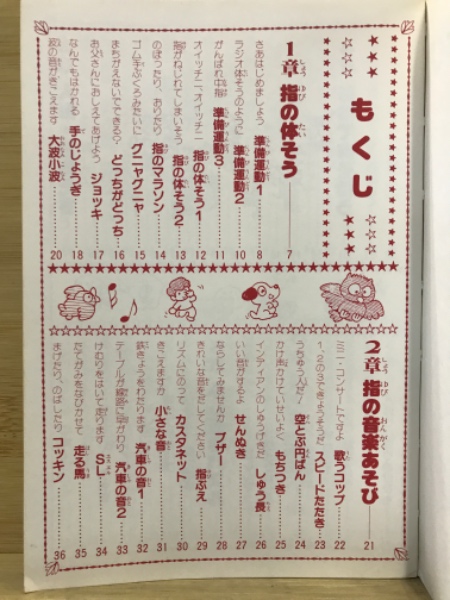 もくじ
1章 指の体そう 7
さあはじめましょう 準備運動1 8
ラジオ体そうのように 準備運動2 10
がんばれ中指 準備運動3 11
オイッチニ、オイッチニ 指の体そう1 12
指がねじれてしまいそう 指の体そう2 13
のぼったり、おりたり 指のマラソン 14
ゴム手ぶくろみたいに グニャグニャ 15
まちがえないでできる? どっちがどっち 16
お父さんにおしえてあげよう ジョッキ 17
なんでもはかれる 手のじょうぎ 18
波の音がきこえます 大波小波 20
2章 指の音楽あそび 21
ミニ・コンサートですよ 歌うコップ 22
1、2の3できょうそうだ スピードたたき 23
うちゅう人だ! 空とぶ円ばん 24
かけ声かけていせいよく もちつき 25
インディアンのしゅうげきだ しゅう長 26
いい音がするよ せんぬき 27
ならしてみませんか ブザー 28
きれいな音をだしてください 指ぶえ 29
リズムにのって カスタネット 30
きこえますか 小さな音 31
鉄きょうをわたります 汽車の音1 32
テーブルが線路に早がわり 汽車の音2 33
けむりをはいて走ります SL 34
たてがみをなびかせて 走る馬 35
まげたり、のばしたり コッキン 36